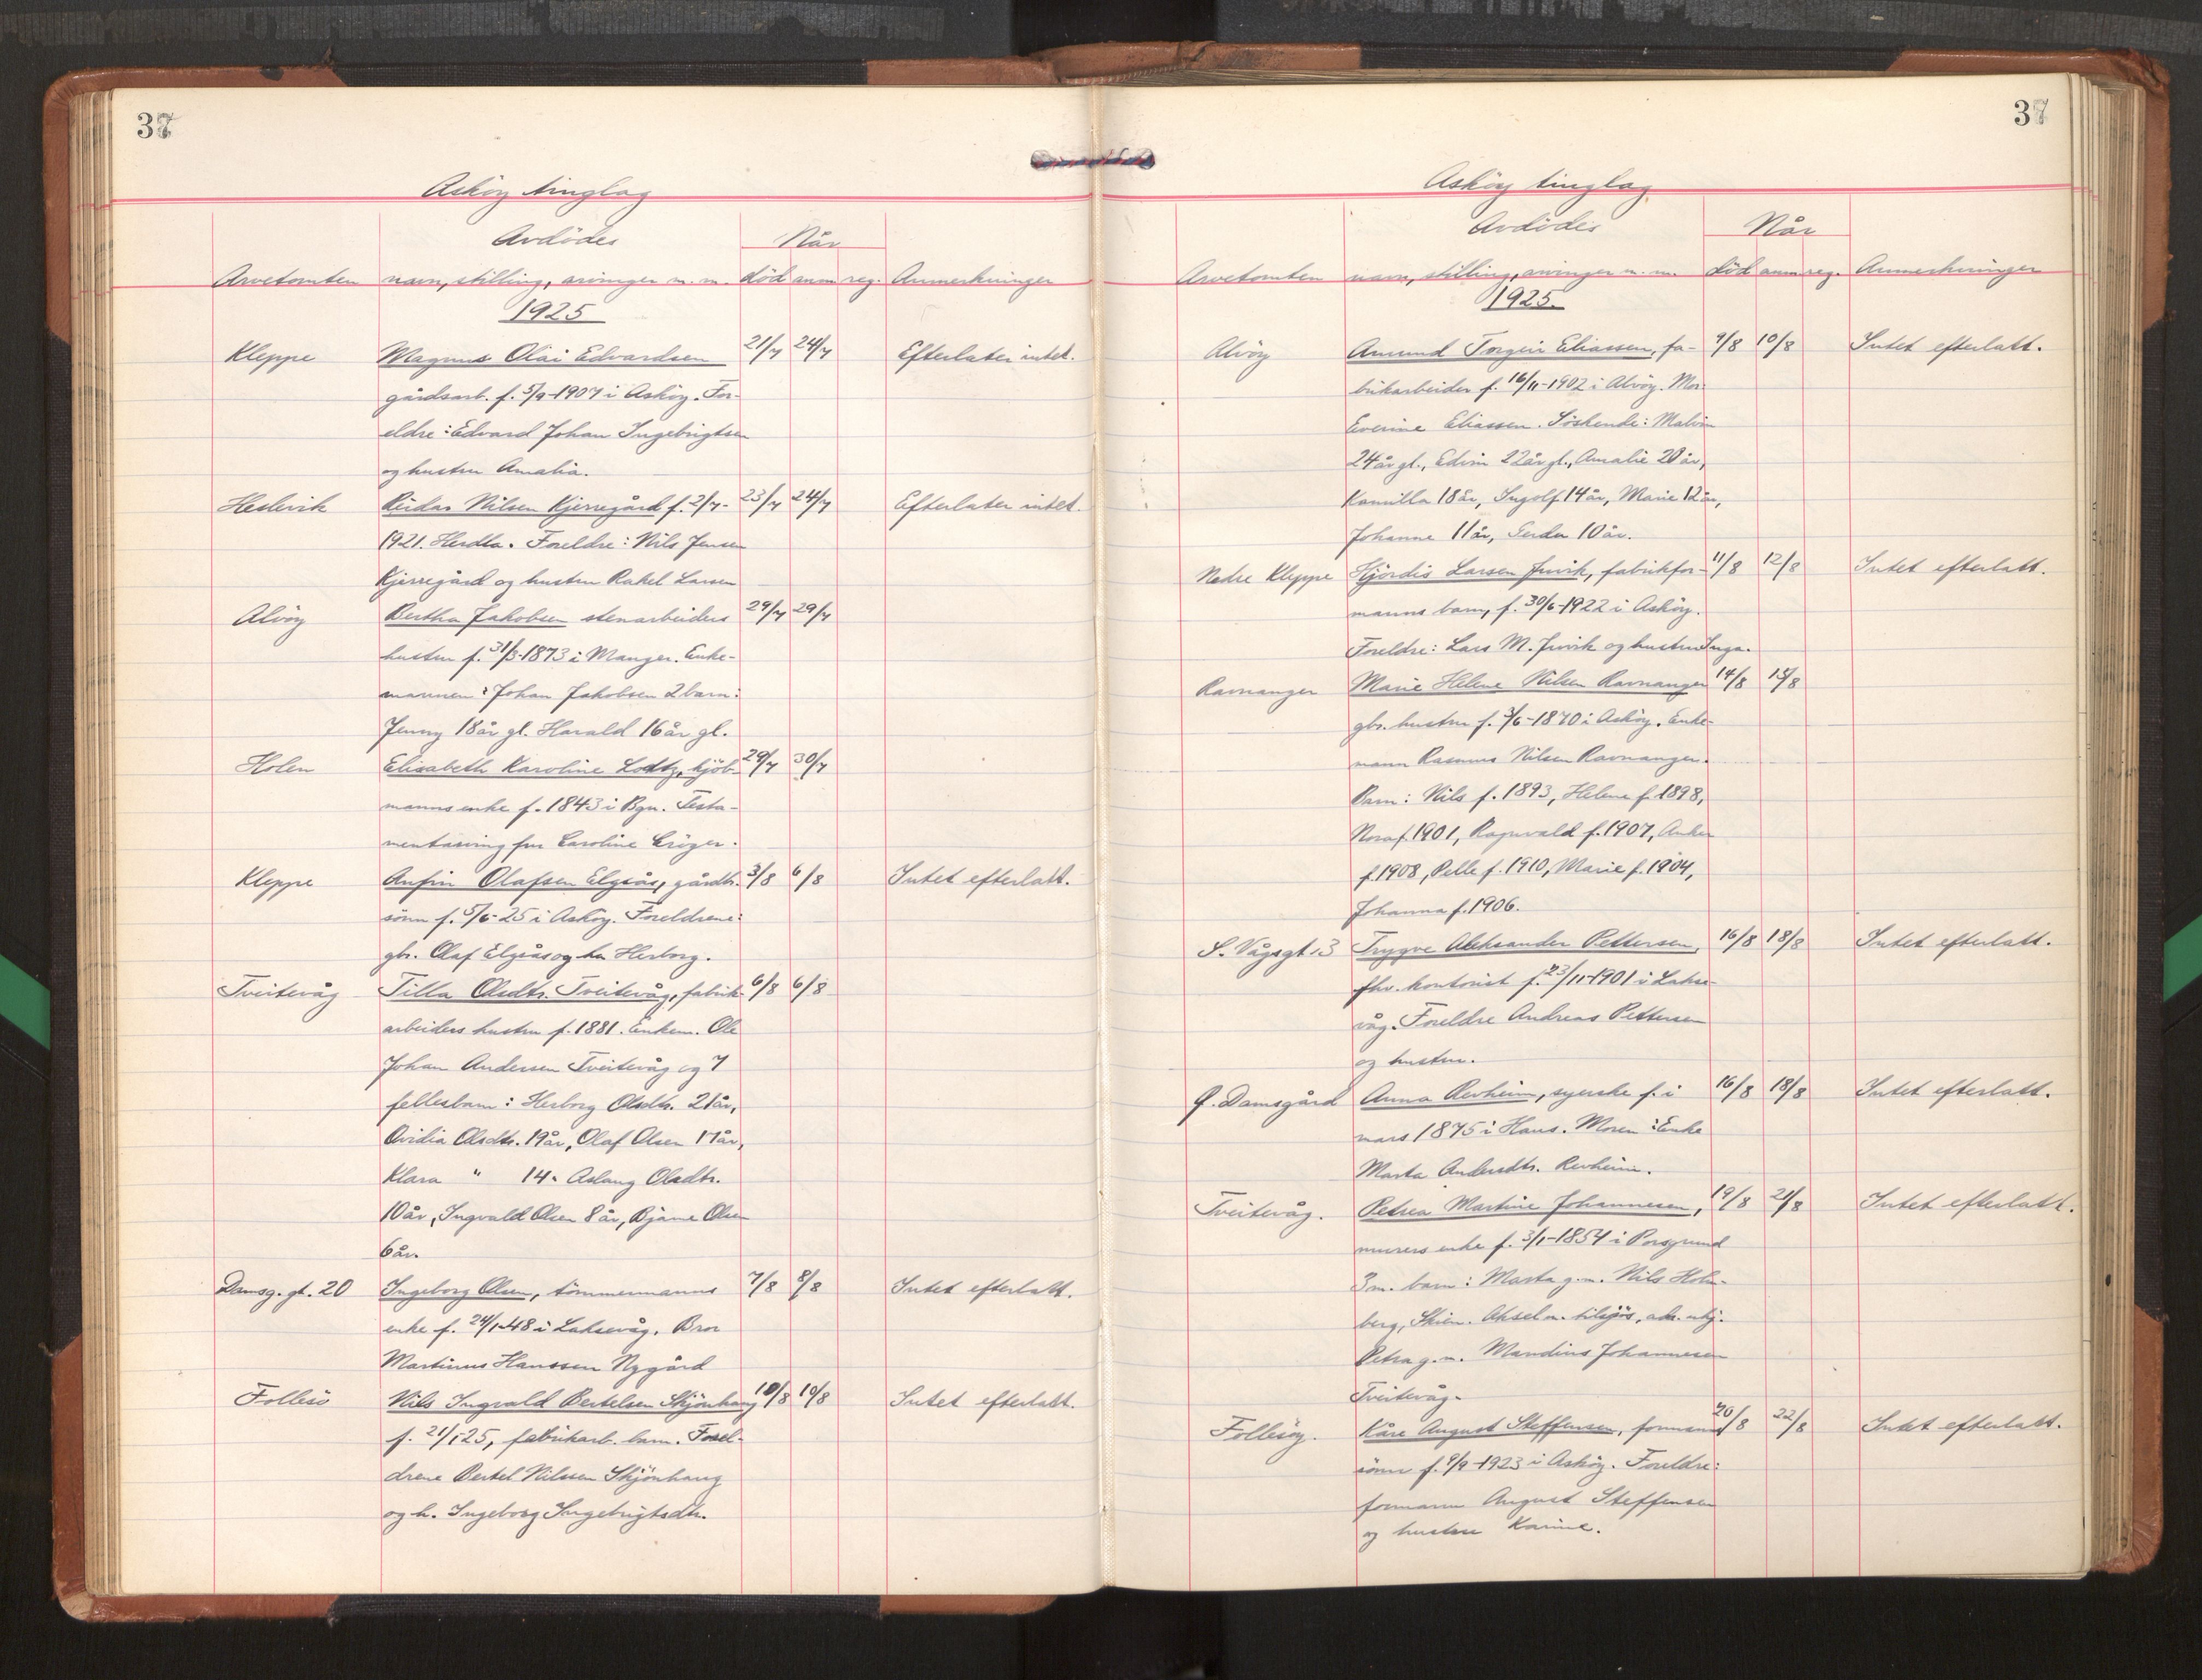 37
Asköy tinglag
Avdödes
Når
Arvetomten navn, stilling, arvinger m. m. död anm reg. Anmerkninger
1925
Kleppe Magnus Olai Edvardsen 21/7 24/7 Efterlater intet.
gårdsarb. f. 5/9-1907 i Asköy. For-
eldre: Edvard Johan Ingebrigtsen
og hustru Amalia.
Heslevik Reidar Nilsen Kjerregård f. 2/7- 23/7 24/7 Efterlater intet.
1921. Herdla. Foreldre: Nils Jensen
Kjerregård og hustru Rakel Larsen
Alvöy Bertha Jakobsen stenarbeiders 29/7 29/7
hustru f. 31/3-1873 i Manger. Enke-
mannen: Johan Jakobsen 2 barn:
Jenny 18 år gl. Harald 16 år gl.
Holen Elisabeth Karoline kjöb- 29/7 30/7
manns enke f. 1843 i Bgn. Testa-
mentarving fru Caroline Cröger.
Kleppe Anfin Olafsen Elgsås, gårdb. 3/8 6/8 Intet efterlatt.
sönn f. 5/6-25 i Asköy. Foreldrene:
gbr. Olaf Elgsås og hu Herborg.
Tveitevåg Tilla Olsdtr. Tveitevåg, fabrik- 6/8 6/8
arbeiders hustru f. 1881. Enkem. Ole
Johan Andersen Tveitevåg og 7
fellesbarn: Herborg Olsdtr. 21 år,
Ovidia Olsdtr. 19 år, Olaf Olsen 17 år,
Klara " 14 " Aslaug Olsdtr.
10 år, Ingvald Olsen 8 år, Bjarne Olsen
6 år.
Damsg. gt. 20 Ingeborg Olsen, tömmermanns 7/8 8/8 Intet efterlatt.
enke f. 24/1-48 i Laksevåg. Bror
Martinus Hanssen Nygård
Follesö Nils Ingvald Bertelsen Skjönhaug 10/8 10/8 Intet efterlatt.
f. 21/1 25, fabrikarb. barn. Forel-
drene Bertel Nilssen Skjönhaug
og h. Ingeborg Ingebrigtsdtr.
37
Asköy tinglag
Avdödes
Når
Arvetomten navn, stilling, arvinger m. m. död anm reg. Anmerkninger
1925.
Alvöy Amund Torgeir Eliassen, fa- 9/8 10/8 Intet efterlatt.
brikarbeider f. 16/11-1902 i Alvöy. Mor:
Everine Eliassen. Söskende: Malvin
24 år gl., Edvin 22 år gl., Amalie 20 år,
Kamilla 18 år, Ingolf 14 år, Marie 12 år,
Johanne 11 år, Gerda 10 år.
Nedre Kleppe Hjördis Larsen Juvik, fabrikfor- 11/8 12/8 Intet efterlatt.
manns barn, f. 30/6-1922 i Asköy.
Foreldre: Lars M. Juvik og hustru Inga.
Ravnanger Marie Helene Nilsen Ravnanger 14/8 15/8
gbr. hustru f. 3/6-1870 i Asköy. Enke-
mann Rasmus Nilsen Ravnanger.
Barn: Nils f. 1893, Helene f. 1898,
Nora f. 1901, Ragnvald f. 1907, Anker
f. 1908, Pelle f. 1910, Marie f. 1904,
Johanna f. 1906.
S. Vågsgt 3 Trygve Aleksander Pettersen, 16/8 18/8 Intet efterlatt.
fhv. kontorist f. 23/11-1901 i Lakse-
våg. Foreldre Andreas Pettersen
og hustru.
G. Damsgård Anna Revheim, syerske f. i 16/8 18/8 Intet efterlatt.
mars 1875 i Haus. Moren: Enke
Marta Andersdtr. Revheim.
Tveitevåg. Petrea Martine Johannesen, 19/8 21/8 Intet efterlatt.
murers enke f. 3/1-1854 i Porsgrund
3 m. barn: Marta g. m. Nils Holm-
berg, Skien. Aksel n. tilsjös,
Petra g. m. Mandius Johannesen
Tveitevåg.
Follesöy. Kåre August Steffensen, formanns 20/8 22/8 Intet efterlatt.
sönn f. 9/9-1923 i Asköy. Foreldre:
formann August Steffensen
og hustru Karine.